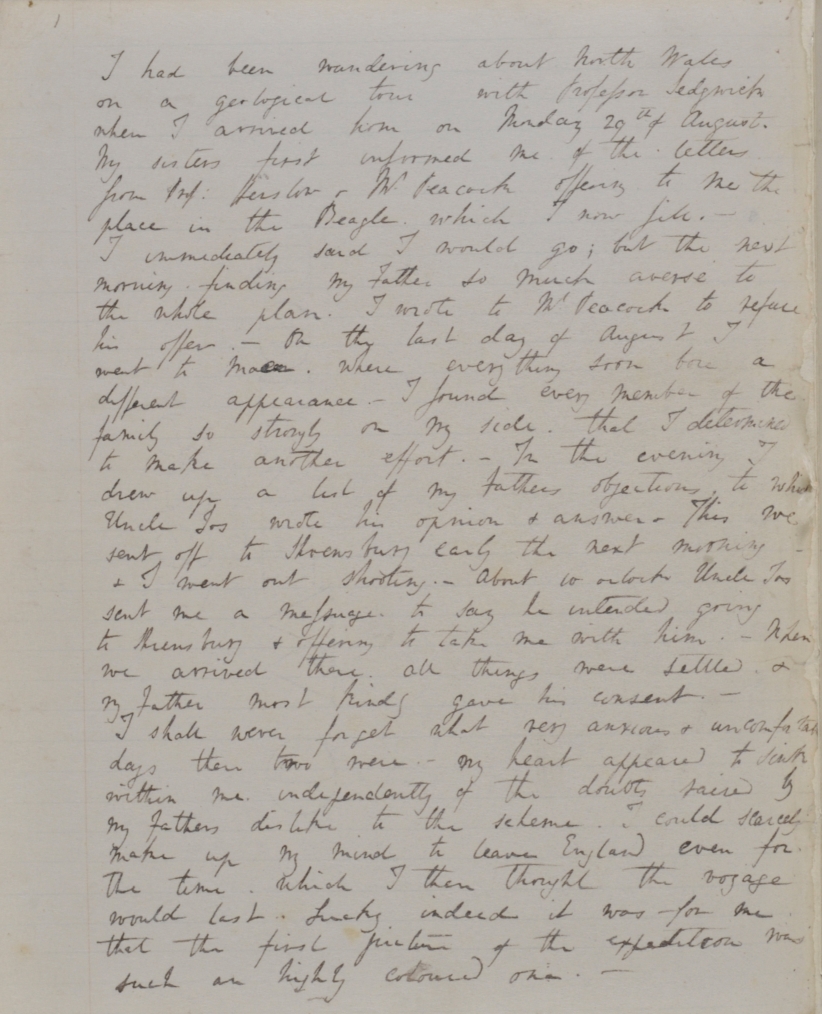 1
I had been wandering about North Wales
on a geological tour with Professor Sedgwick
when I arrived home on Monday 29th of August.
My sisters first informed me of the letters
from Prof: Henslow & Mr Peacock offering to me the
place in the Beagle. which I now fill. —
I immediately said I would go; but the next
morning. finding my Father so much averse to
the whole plan. I wrote to Mr Peacock to refuse
his offer. — On the last day of August I
went to Maer. where everything soon bore a
different appearance. — I found every member of the
family so strongly on my side. that I determined
to make another effort. — In the evening I
drew up a list of my Fathers objections. to which
Uncle Jos wrote his opinion & answer. This we
sent off to Shrewsbury early the next morning —
& I went out shooting. — About 10 oclock Uncle Jos
sent me a message. to say he intended going
to Shrewsbury & offering to take me with him. — When
we arrived there. all things were settled. &
my Father most kindly gave his consent. —
I shall never forget what very anxious & uncomfortable
days these two were. — my heart appeared to sink
within me. independently of the doubts raised by
my Fathers dislike to the scheme. I could scarcely
make up my mind to leave England even for
the time. which I then thought the voyage
would last. Lucky indeed it was for me
that the first picture of the expedition was
such an highly coloured one. —